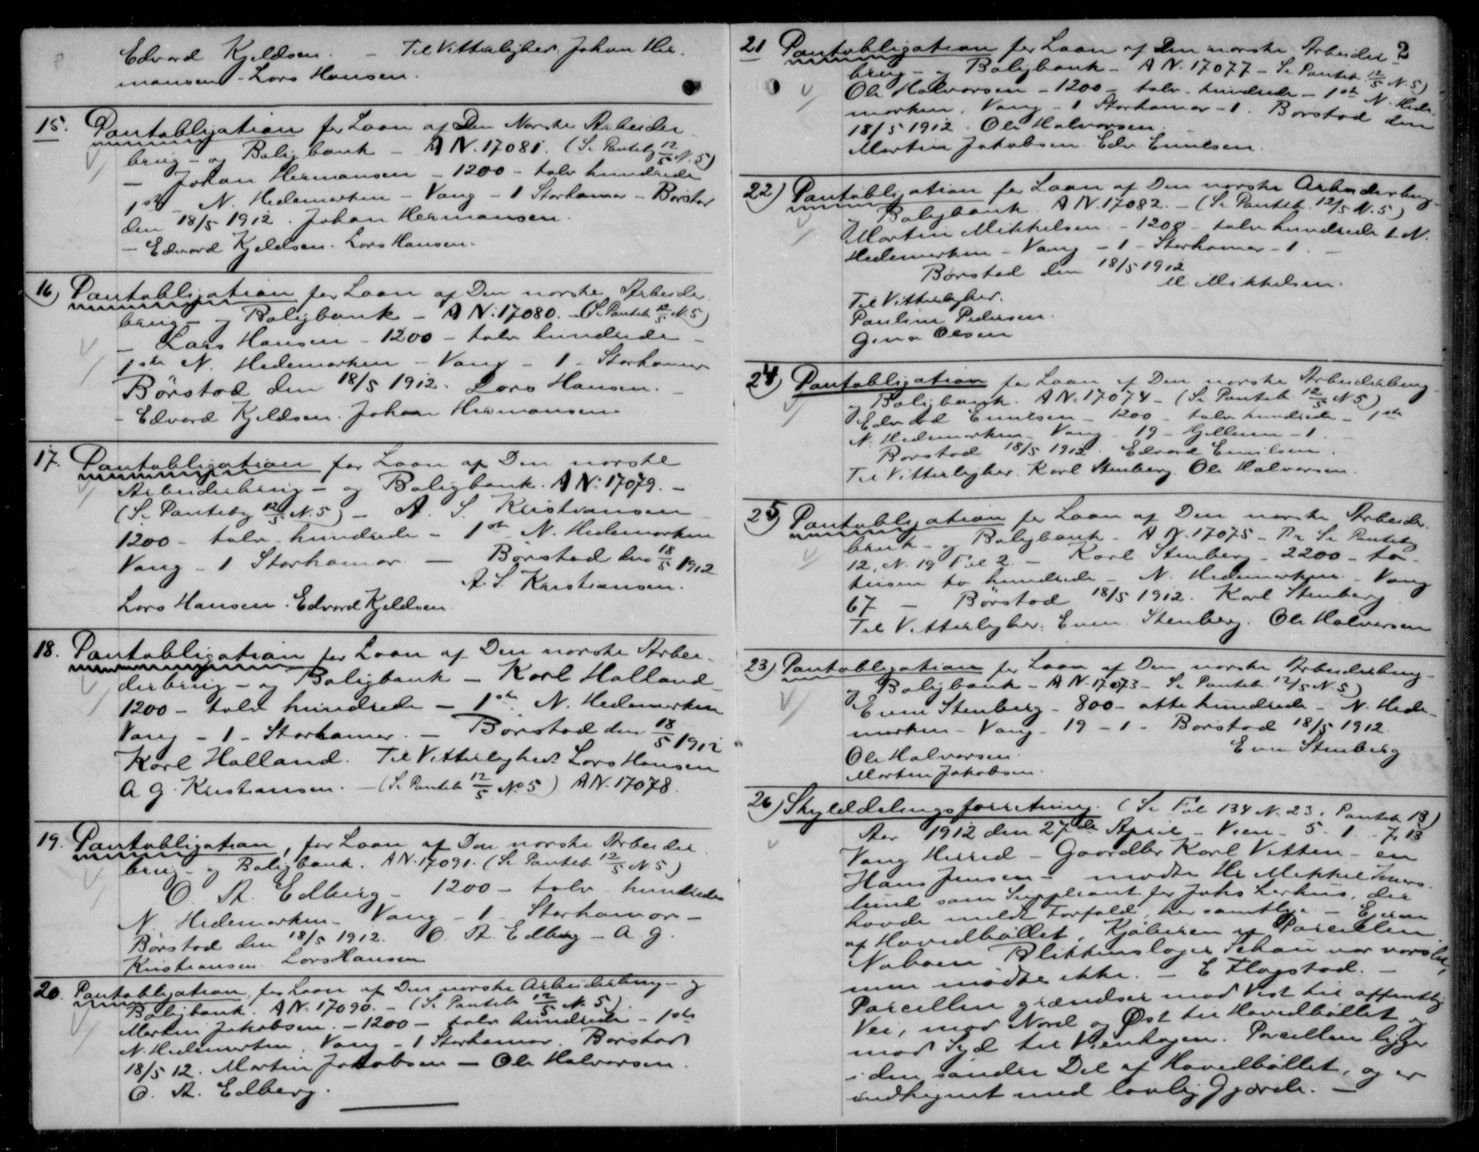 Edvard Kjeldsen. – Til Vitterlighed Johan Her-
mansen – Lars Hansen.
15. Pantobligation for Laan af Den Norske Arbeider
brug – og Boligbank – A N. 17081. (Se Panteb 12/5 N. 5)
– Johan Hermansen – 1200 – tolv hundrede
1ste N. Hedemarken – Vang – 1 Storhamar – Børstad
den 18/5 1912. Johan Hermansen.
– Edvard Kjeldsen. Lars Hansen.
16) Pantobligation for Laan af Den norske Arbeider
brug – og Boligbank – A N. 17080. (Se Panteb 12/5 N. 5)
– Lars Hansen – 1200 – tolv hundrede –
1ste N. Hedemarken – Vang – 1 – Storhamar
Børstad den 18/5 1912. Lars Hansen.
– Edvard Kjeldsen. Johan Hermansen
17. Pantobligation for Laan af Den norske
Arbeiderbrug – og Boligbank. A N. 17079. –
(Se Panteb 12/5 N. 5) – A. S. Kristiansen
1200 – tolv hundrede – 1ste N. Hedemarken
Vang – 1 Storhamar. – Børstad den 18/5 1912
A. S. Kristiansen.
Lars Hansen. Edvard Kjeldsen
18. Pantobligation for Laan af Den norske Arbei-
derbrug – og Boligbank – Karl Halland –
1200 – tolv hundrede – 1ste N. Hedemarken
Vang – 1 – Storhamar. – Børstad den 18/5 1912
Karl Halland. Til Vitterlighed: Lars Hansen
A g. Kristiansen. – (Se Panteb 12/5 No 5) A N. 17078.
19. Pantobligation, for Laan af Den norske Arbeider
brug – og Boligbank. A N. 17091. (Se Panteb 12/5 N 5)
O. A. Edberg – 1200 – tolv hundrede
N. Hedemarken – Vang – 1 – Storhamar –
Børstad den 18/5 1912. O. A. Edberg – A. g.
Kristiansen. Lars Hansen
20. Pantobligation, for Laan af Den norske Arbeiderbrug – og
Boligbank. A N. 17090. – (Se Panteb 12/5 N. 5).
Martin Jakobsen. – 1200 – tolv hundrede – 1ste
N. Hedemarken. Vang – 1 Storhamar. Børstad
18/5 12. Martin Jakobsen – Ole Halvorsen.
O. A. Edberg.
2
21 Pantobligation for Laan af Den norske Arbeider
brug – og Boligbank – A N. 17077 – Se Panteb 12/5 N. 5)
Ole Halvorsen – 1200 – tolv hundrede – 1ste N. Hede-
marken. Vang – 1 Storhamar – 1. Børstad den
18/5 1912. Ole Halvorsen.
Martin Jakobsen. Edv. Emilsen.
22) Pantobligation for Laan af Den norske Arbeiderbrug –
og Boligbank. A N. 17082. – (Se Panteb. 12/5 N. 5)
Martin Mikkelsen. – 1200 – tolv hundrede 1 N.
Hedemarken – Vang – 1 – Storhamar – 1. –
Børstad den 18/5 1912
M Mikkelsen.
Til Vitterlighed.
Pauline Pedersen.
Gina Olsen
24) Pantobligation for Laan af Den norske Arbeiderbrug –
og Boligbank. A N. 17074 – (Se Panteb 12/5 N 5)
Edvard Emilsen – 1200 – tolv hundrede – 1ste
N. Hedemarken – Vang – 19 – – 1.
Børstad 18/5 1912. Edvard Emilsen.
Til Vitterlighed. Karl Stenberg. Ole Halvorsen.
25) Pantobligation for Laan af Den norske Arbeider
bruk – og Boligbank – A N. 17075 – Se Panteb
12. N. 19 Fol 2. – Karl Stenberg – 2200 – to
tusen to hundrede – N. Hedemarken – Vang
67 – Børstad 18/5 1912. Karl Stenberg.
Til Vitterlighed: Even Stenberg. Ole Halvorsen
23) Pantobligation for Laan af Den norske Arbeiderbrug –
og Boligbank – A N 17073 – Se Panteb. 12/5 N 5)
Even Stenberg – 800 – otte hundrede – N. Hede-
marken – Vang – 19 – 1 – Børstad 18/5 1912.
Ole Halvorsen. Even Stenberg
Martin Jakobsen.
26) Skylddelingsforretning. (Se Fol 134 N. 23. Panteb 13)
Aar 1912 den 27de April – Vien – 5 – 1
Vang Herred – Gaardbr Karl Vitten – en
Hans Jensen – mødte Hr Mikkel
lund som Suppleant for Johs Lerhus, der
havde meldt Forfald, her samtlige – Eieren
af Hovedbøllet, Kjøberen af Parcellen
Naboen Blikkenslager Schau var varslet,
men mødte ikke. – E Flagstad. –
Parcellen grændser mod Vest til offentlig
Vei, mod Nord og Øst til Hovedbøllet og
mod Syd til Vienhagen. Parcellen ligger
i den søndre Del af Hovedbøllet, og er
indhegnet med lovlig Gjærde. –